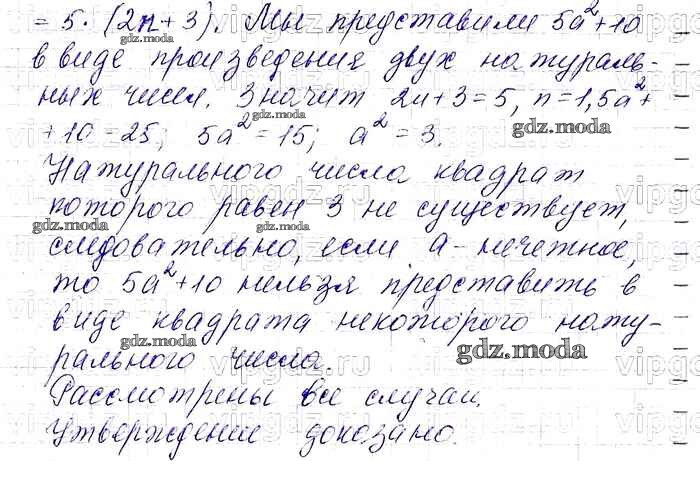 = 5 · (2n + 3). Мы представили 5a²+10
в виде произведения двух натураль-
ных чисел. Значит 2n+3=5, n=1, 5a²+
+10=25; 5a²=15; a²=3.
Натурального числа квадрат
которого равен 3 не существует,
следовательно, если a - нечетное,
то 5a²+10 нельзя представить в
виде квадрата некоторого нату-
рального числа.
Рассмотрены все случаи.
Утверждение доказано.
gdz.moda
vipgdz.ru